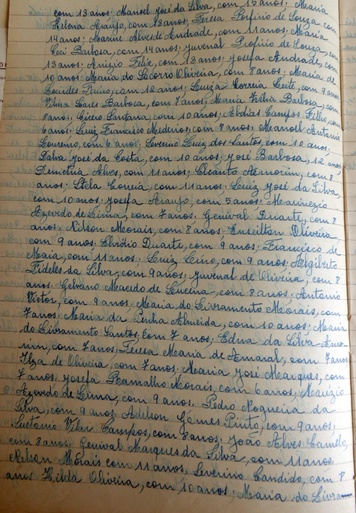 com 13 anos; Manoel José da Silva, com 13 anos; Maria
Helena Araujo, com 13 anos; Tereza Porfirio de Souza com
14 anos; Maxime Alves de Andrade, com 11 anos; Maria
Ceci Barbosa, com 14 anos; Juvenal Profirio de Souza, com
13 anos; Anizio Felix, com 13 anos; Josefa Andrade, com
10 anos; Maria do Socorro Oliveira, com 8 anos; Maria de
Lourdes com 12 anos; Luiza Correia Leite, com 8 anos
Barbosa, com 8 anos; Maria Barbosa, com
8 anos; Cicero Santana com 10 anos; Campos Filho, com
6 anos; Luiz Francisco Medeiros, com 8 anos; Manoel Antonio
Loureno, com 6 anos; Severino Luiz dos Santos, com 10 anos,
José da Costa, com 10 anos; José Barbosa, 12 anos,
Demetria Alves, com 11 anos; com 8
anos; Stela Correia com 11 anos; Luiz José da Silva,
com 10 anos; Josefa Araujo, com 5 anos;
Azevedo de Lima, com 7 anos. Genival Duarte, com 8
anos; Nelson Morais, com 8 anos; Oliveira,
com 9 anos; Duarte, com 9 anos; Francisco de
Maria, com 11 anos; Luiz Cirino, com 9 anos
Fideles da Silva, com 9 anos; Juvenal de Oliveira, com 8
anos; Macedo de com 8 anos; Antonio
Victor, com 9 anos; Maria do Livramento Moraes, com
7 anos; Maria da Penha Almeida, com 10 anos; Maria
do Livramento Santos com 7 anos, Edna da Silva
com 7 anos; Tereza Maria de Amaral, com 7 anos
Ilza de Oliveira, com 7 anos; Maria José Marques, com
7 anos, Josefa Ramalho Morais, com 6 anos,
Azevedo de Lima, com 9 anos, Pedro Nogueira da
Silva, com 9 anos; Adilson Gomes Pinto, com 9 anos;
Vilar Campos, com 8 anos; João Alves Camilo,
com 8 anos; Genival Marques da Silva, com 11 anos
Nelson Morais com 11 anos, Severino Candido, com 8
anos Hilda Oliveira, com 10 anos; Maria do Livra-